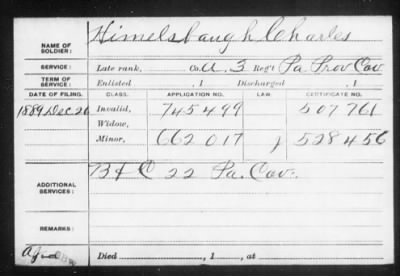 NAME OF SOLDIER: Himelsbaugh Charles
SERVICE: Late rank, Co. A, 3 Reg't Pa Prov Cav
TERM OF SERVICE: Enlisted , 1 Discharged , 1
DATE OF FILING. CLASS. APPLICATION NO. LAW. CERTIFICATE NO.
1889 Dec 26 Invalid, 745499 507761
Widow,
Minor, 662017 J 528456
ADDITIONAL SERVICES: B & C 22 Pa. Cav.
REMARKS:
Died , 1 , at